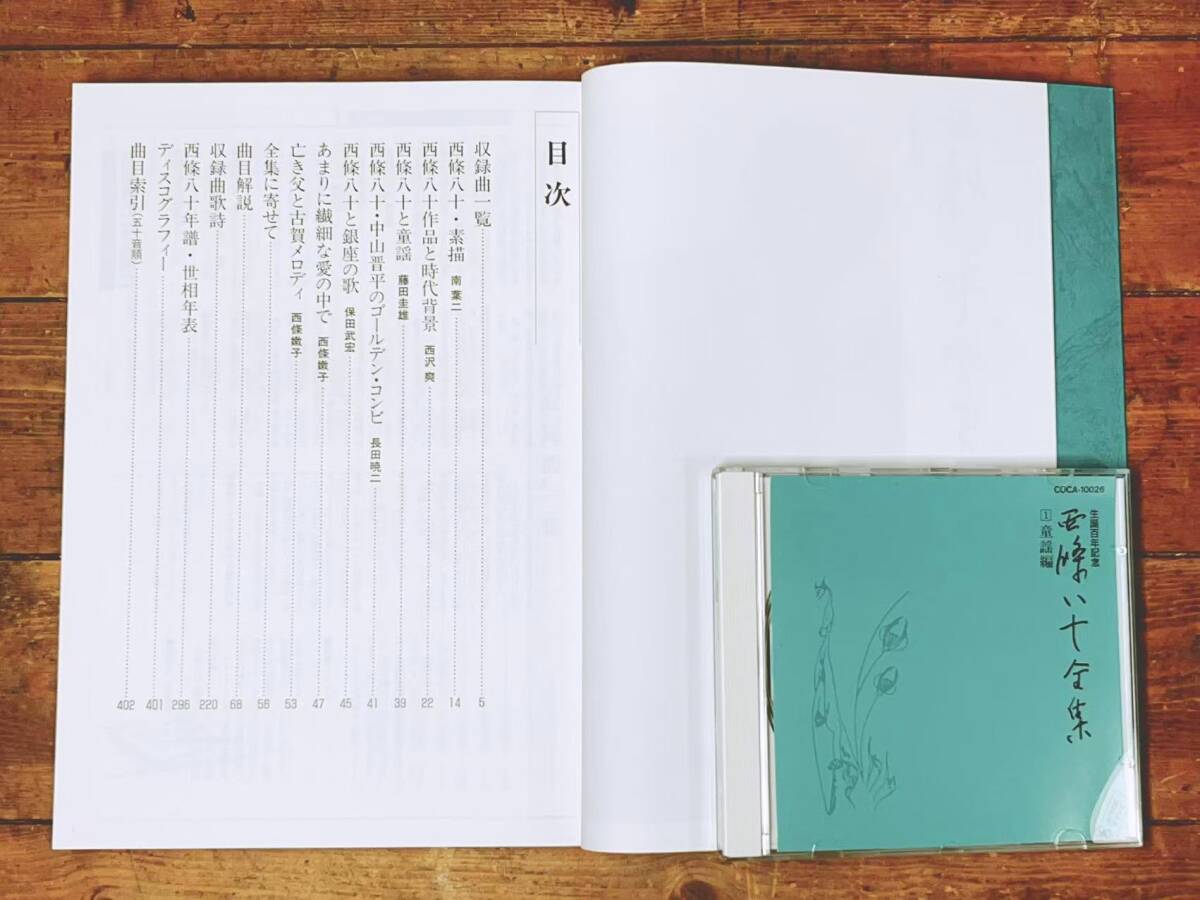 目次
収録曲一覧 5
西條八十・素描 南葉二 14
西條八十作品と時代背景 西沢爽 22
西條八十と童謡 藤田圭雄 39
西條八十・中山晋平のゴールデン・コンビ 長田暁二 41
西條八十と銀座の歌 保田武宏 45
あまりに繊細な愛の中で 西條嫩子 47
亡き父と古賀メロディ 西條嫩子 53
全集に寄せて 56
曲目解説 68
収録曲歌詩 220
西條八十年譜・世相年表 296
ディスコグラフィー 401
曲目索引(五十音順) 402
COCA-10026
生誕百年記念
西條八十全集
1童謡編